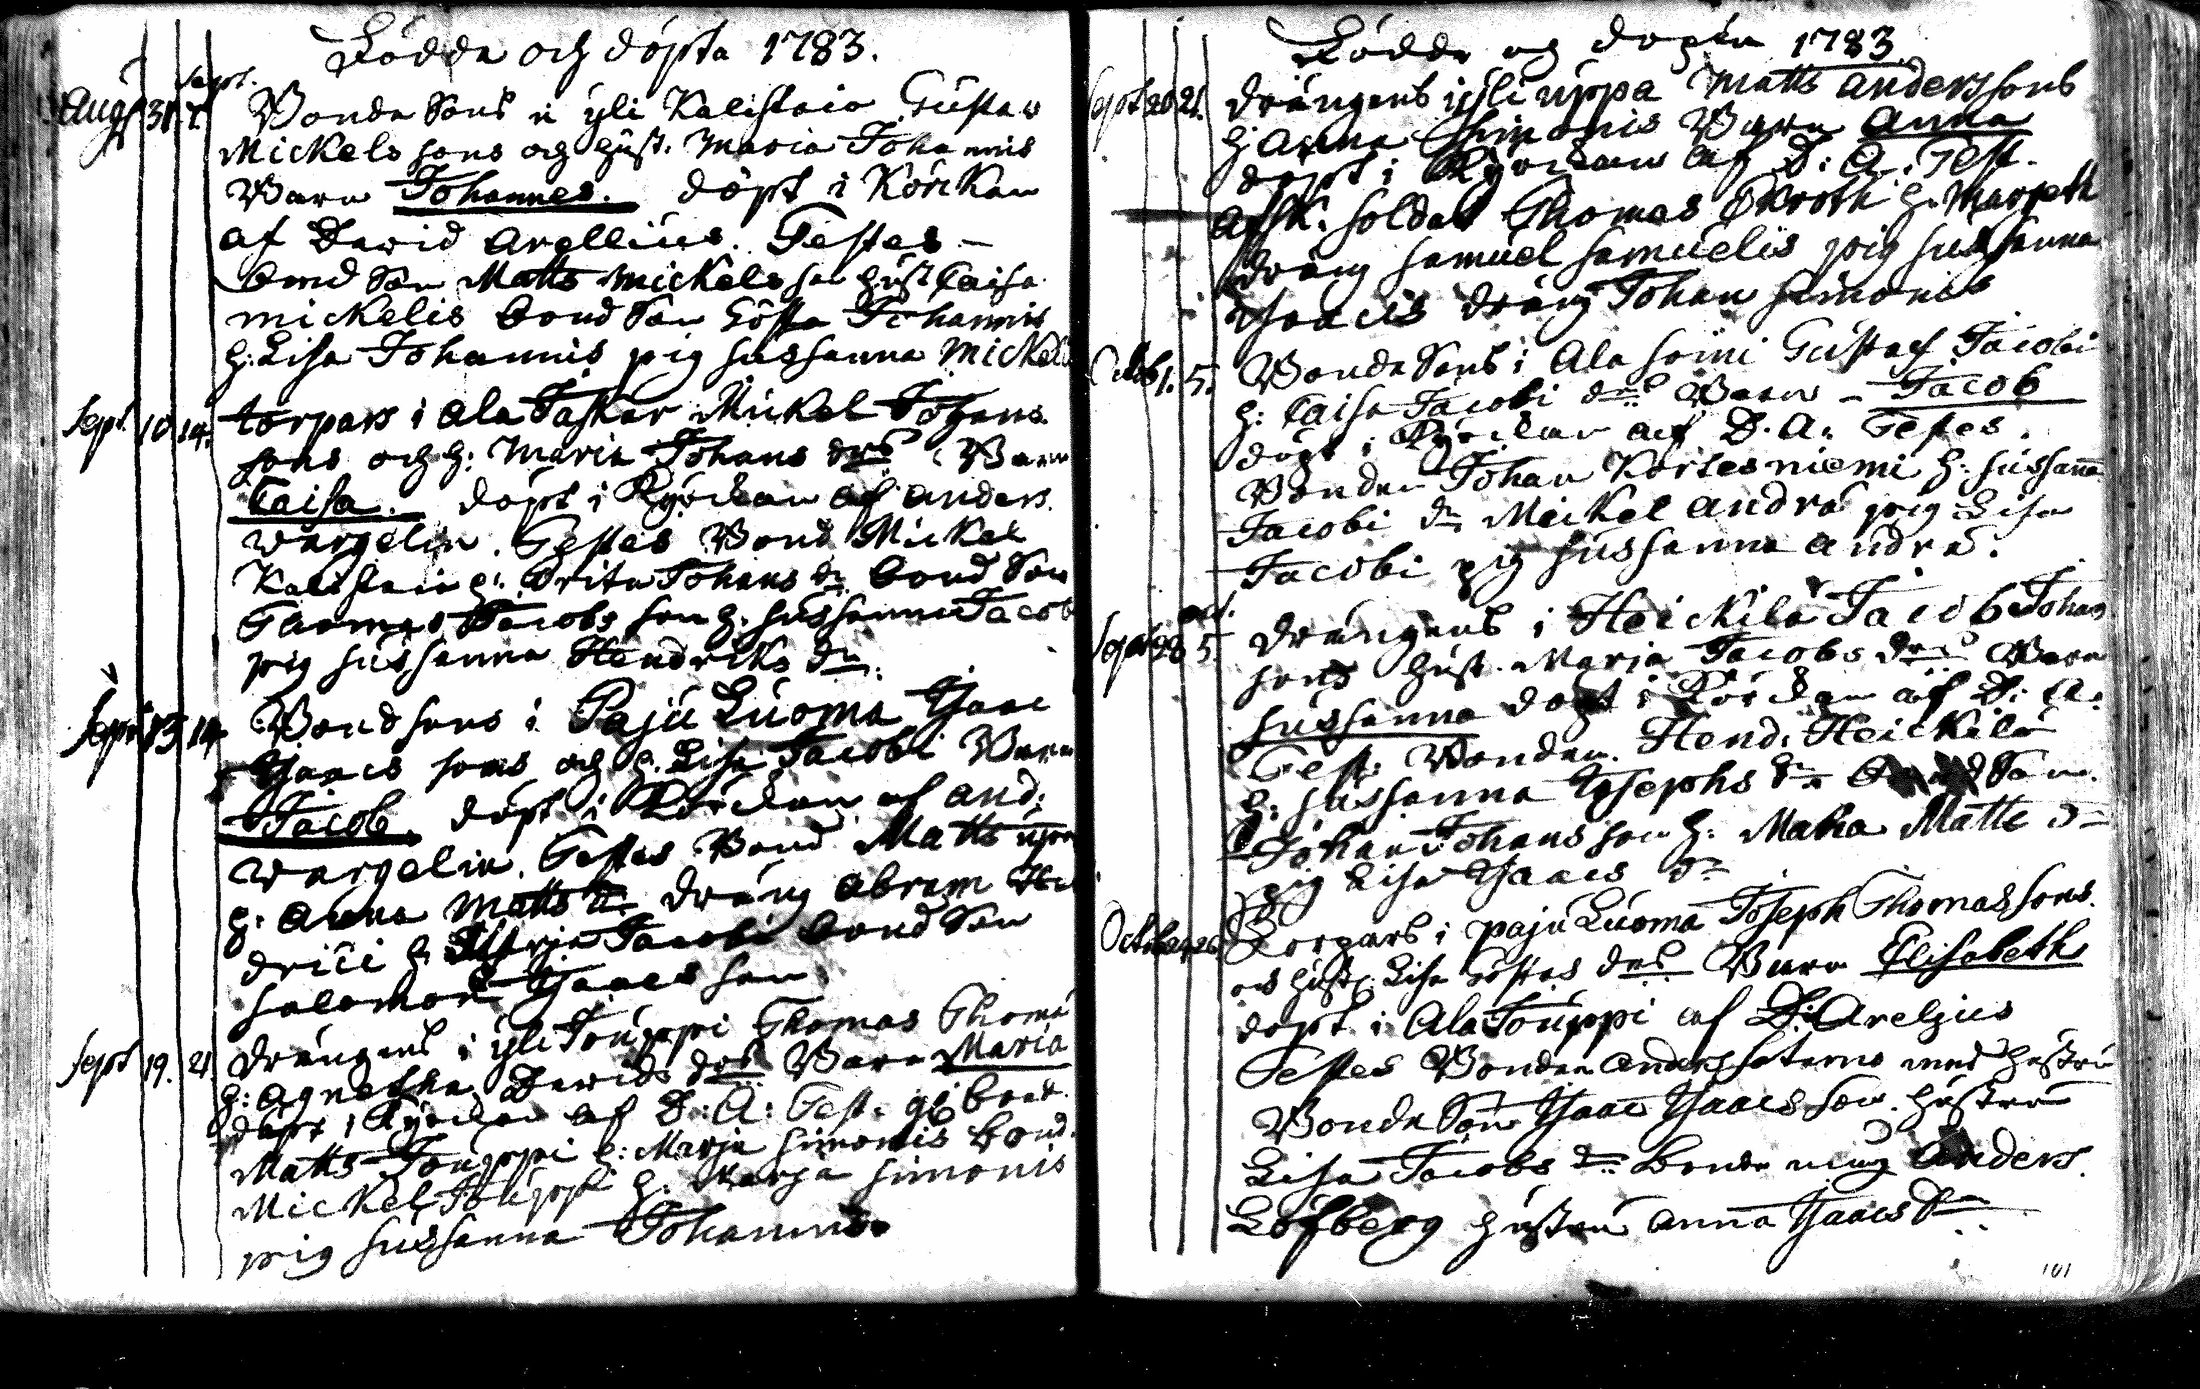 Födda och döpta 1783.
Sept.
Aug 31. 7. Bonde Sons i yli Kalistaio Gustav
Mickels sons och hust. Maria Johannis
Barn Johannes. döpt i Körckan
af David Arellius. Testes –
bond Son Matts Mickels son hust Caisa
Mickelis bond Son Gösta Johannis
h: Lisa Johannis pig Sussanna Mickeli
Sept. 10 14. torpars i Ala Taskar Mickel Johans
sons och h: Maria Johans drs Barn
Caisa. döpt i Kyrckan af Anders
Wargelin. Testes Bond Mickel
Kalistaio h: Brita Johans dr bond Son
Thomas Jacobs son h. Sussanna Jacob
pig Sussanna Hendricks dr.
Sept 13 14. Bond sons i Paju Luoma Isaac
Isaacs sons och h. Lisa Jacobi Barn
Jacob. döpt i Körckan af And:
Wargelin. Testes Bond Matts
h: Anna Matts dr. dräng Abram Hen
drici h. Maria Jacobi bond Son
Salomon Isaacs son
Sept 19. 21 drängens i yli Jouppi Thomas Thomæ
h: Agnetha Davids drs Barn Maria
döpt i Kyrckan af D: A: Test. bond
Matts Jouppi h: Marja Simonis bond
Mickel Jouppi h. Marja Simonis
pig Sussanna Johannis
Födda og döpta 1783
Sept 20 21. drängens i yli uppa Matts Anderssons
h Anna Simonis Barn Anna
döpt i Kyrckan af D: A: Test.
Afsk. soldat Thomas h. Margeth
dräng Samuel Samuelis pig Sussanna
Isaacis dräng Johan Simonis
Octob 1. 5. Bonde Sons i Ala Soini Gustaf Jacobi
h: Caisa Jacobi drs Barn – Jacob
döpt i Kyrckan af D. A: Testes.
Bonden Johan Kortesniemi h: Sussanna
Jacobi dr Meickel Andræ pig Lisa
Jacobi pig Sussanna Andræ.
oct.
Sept 28 5 drängens i Heickilä Jacob Johans
sons hust. Maria Jacobs drs Barn
Sussanna döpt i Körckan af D: A:
Test. Bonden. Hend: Heickilä
h: Sussanna Josephs dr Bond Son.
Johan Johans son h: Maria Matts d
pig Lisa Isaacs dr
Octob 24 26 Torpars i paju Luoma Joseph Thomas sons.
os hust: Lisa Göstas drs Barn Elisabeth
döpt i Ala Jouppi af D: Arelius
Testes Bonden Anders med hustru
Bonde Son Isaac Isaacs son. hustru
Lisa Jacobs dr. Anders
Löfberg hustru Anna Isaacs Dr
101